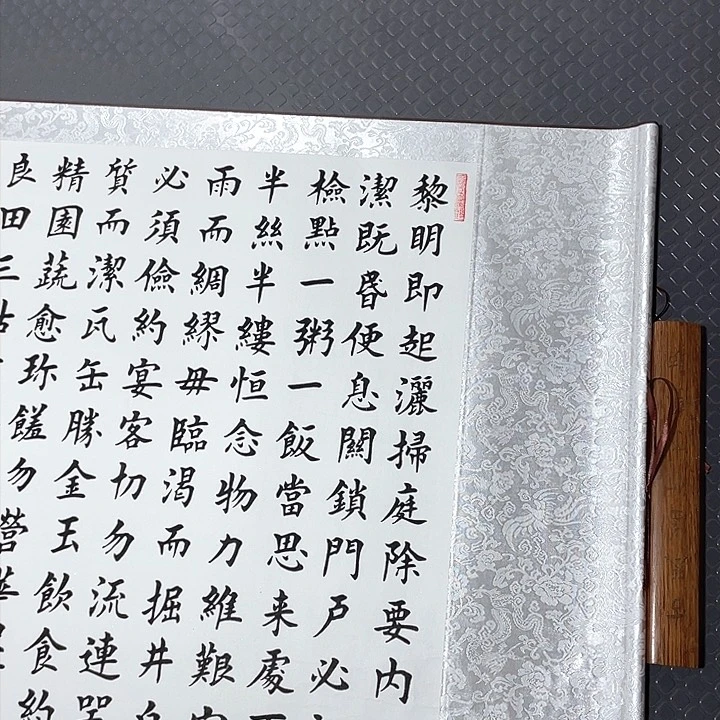 黎明即起灑掃庭除要内
潔既昬便息關鎖門户必
檢點一粥一飯當思来處
半絲半縷恒念物力維艱
雨而綢繆毋臨渴而掘井
必須儉約宴客切勿流連器
質而潔瓦缶勝金玉飲食約
精園蔬愈珍饈勿營華
良田三